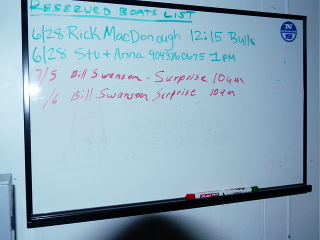 RESERVED BOATS LIST
6/28 RICK MACDONOUGH 12:15 Bulls
6/28 Stu + Anna 9043860675 1PM
7/5 Bill Swanson - Surprise 10am
7/6 Bill Swanson Surprise 10am